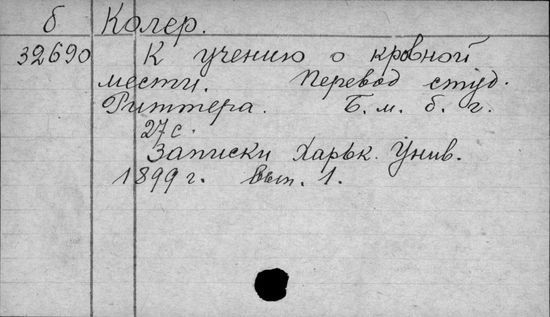 б Колер.
32690 К учению о кровной
мести. Перевод студ.
Риттера. Б. м. б. г.
27 с.
Записки Харьк. Унив.
1899 г. Вып. 1.